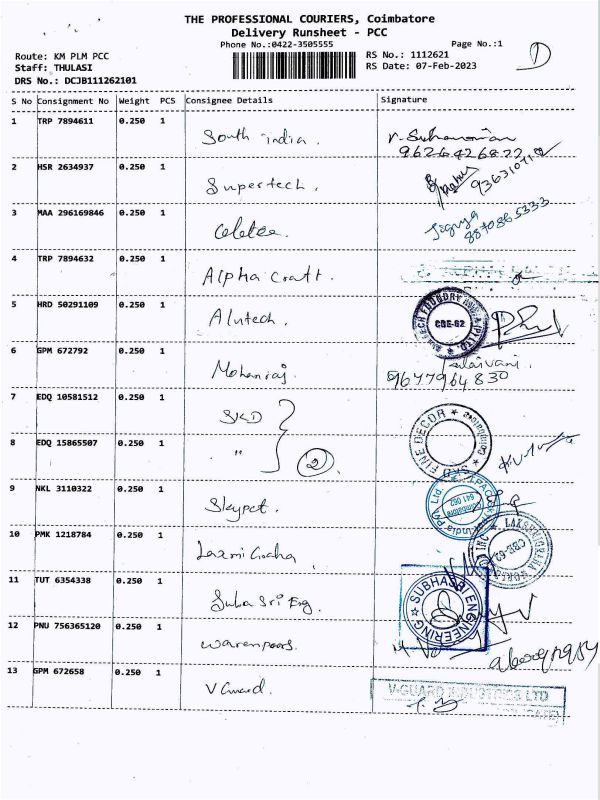 THE PROFESSIONAL COURIERS, Coimbatore
Delivery Runsheet - PCC
Phone No.:0422-3505555
Page No.:1
D
Route: KM PLM PCC
RS No.: 1112621
Staff: THULASI
RS Date: 07-Feb-2023
DRS No.: DCJB111262101
S No Consignment No Weight PCS Consignee Details Signature
1 TRP 7894611 0.250 1 South india.
9626426822
2 HSR 2634937 0.250 1 Supertech.
3 MAA 296169846 0.250 1
8870865333
4 TRP 7894632 0.250 1 Alpha Craft.
5 HRD 50291109 0.250 1 Alutech. CBE-62
6 GPM 672792 0.250 1 Mohanraj
9677964830
7 EDQ 10581512 0.250 1 SKD FINE DECOR
8 EDQ 15865507 0.250 1 " 2
9 NKL 3110322 0.250 1 India Pvt Ltd 641 062
10 PMK 1218784 0.250 1 CBE-62
11 TUT 6354338 0.250 1 Suba Sri Eng. SUBHASRI ENGINEERING
12 PNU 756365120 0.250 1
13 GPM 672658 0.250 1 V Guard. V-GUARD INDUSTRIES LTD